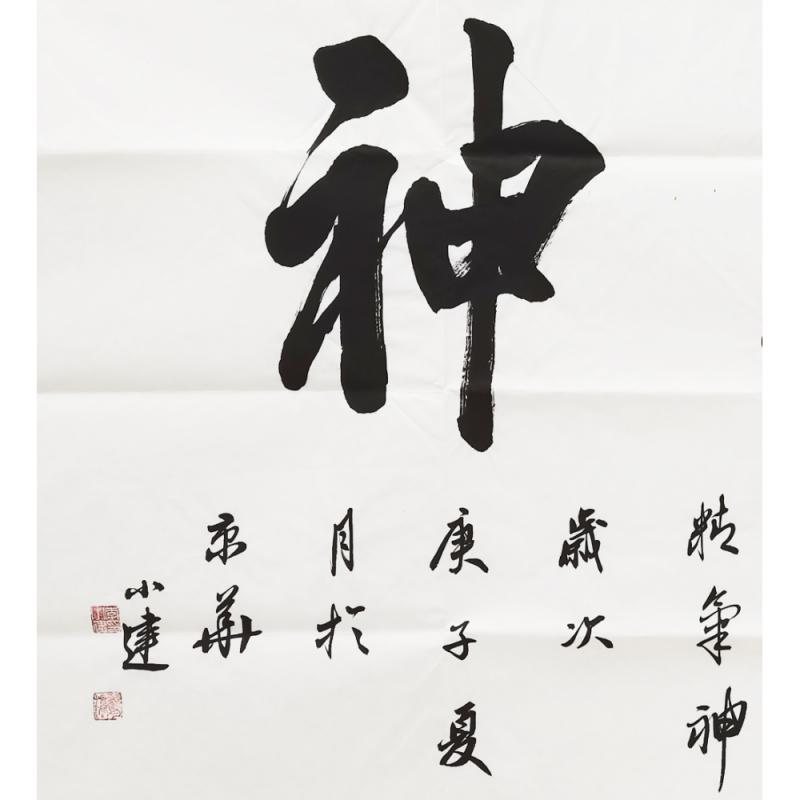 神
精氣神
歲次
庚子夏
月於
京華
小建